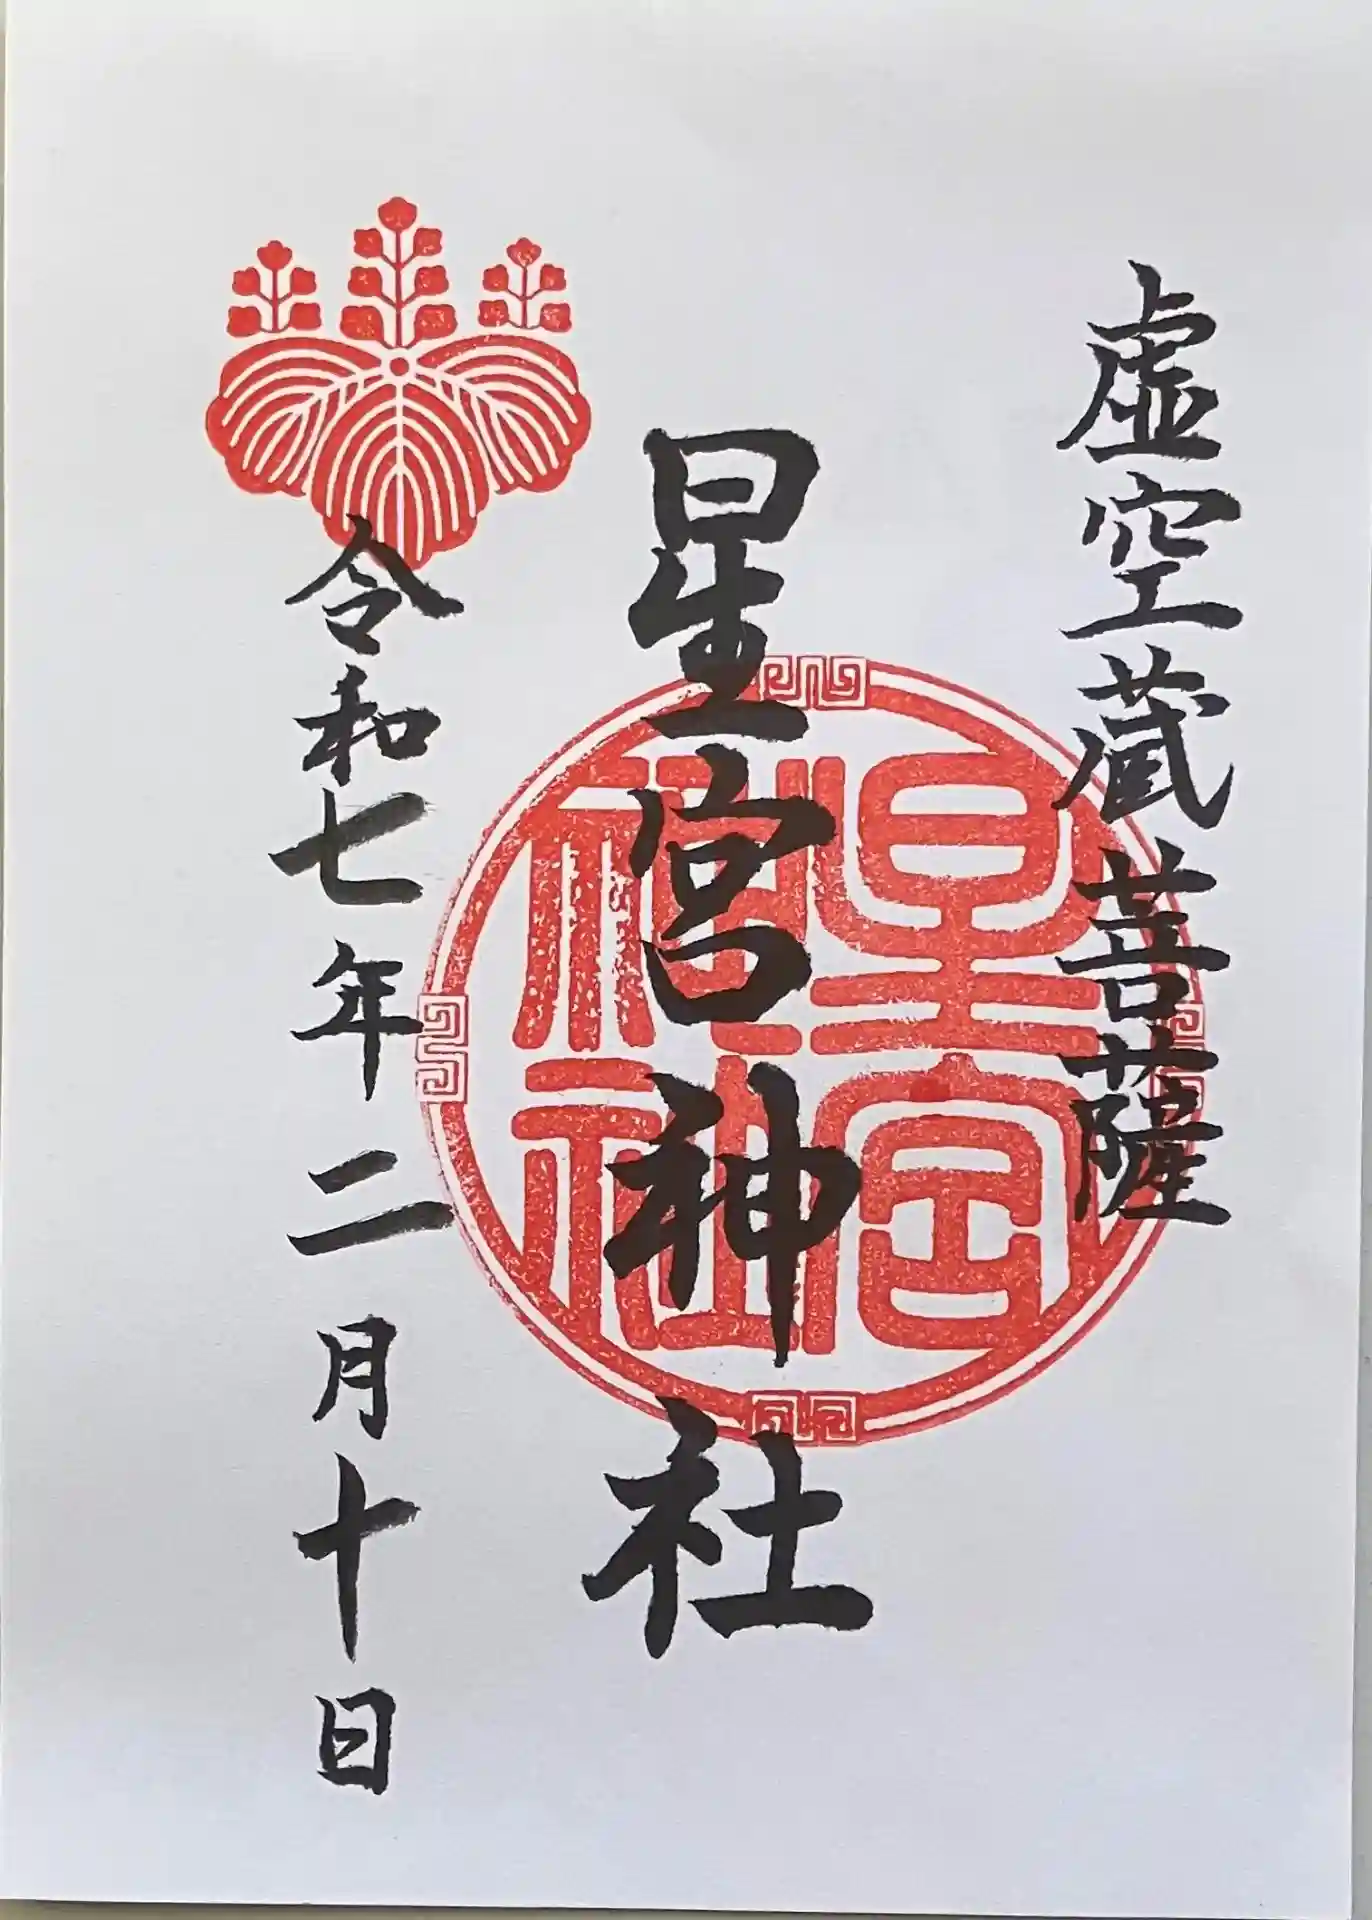 虚空蔵菩薩
星宮神社
星宮
神社
令和七年二月十日